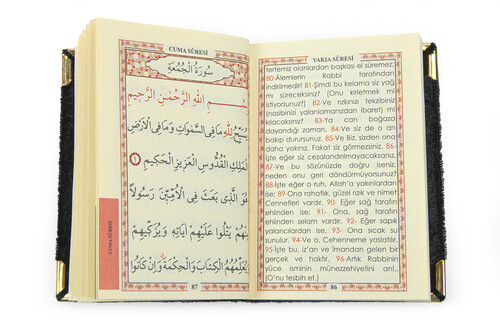 CUMA SÛRESİ
سُورَةُ الْجُمُعَةِ
بِسْــــمِ اللهِ الرَّحْمٰنِ الرَّحِيمِ
يُسَبِّحُ لِلّٰهِ مَا فِي السَّمٰوَاتِ وَمَا فِي الْاَرْضِ
الْمَلِكِ الْقُدُّوسِ الْعَزِيزِ الْحَكِيمِ ١
هُوَ الَّذِي بَعَثَ فِي الْاُمِّيِّنَ رَسُولًا
مِنْهُمْ يَتْلُوا عَلَيْهِمْ اٰيَاتِهِ وَيُزَكِّيهِمْ
وَيُعَلِّمُهُمُ الْكِتَابَ وَالْحِكْمَةَ وَاِنْ كَانُوا
87
CUMA SÛRESİ
VAKIA SÛRESİ
tertemiz olanlardan başkası el süremez;
80-Âlemlerin Rabbi tarafından
indirilmedir! 81-Şimdi bu kelama siz yağ
mı süreceksiniz? (Onu kirletmek mi
istiyorsunuz?) 82-Ve rızkınızı tekzibiniz
(nasibinizi yalanlamanızdan ibaret) mi
kılacaksınız? 83-Ya can boğaza
dayandığı zaman, 84-Ve siz de o an
bakıp durursunuz. 85-Ve Biz, sizden ona
daha yakınız. Fakat siz görmezsiniz.
86-İşte eğer siz cezalandırılmayacaksanız,
87-Ve bu sözünüzde doğru iseniz,
neden onu geri döndürmüyorsunuz?
88-İşte eğer o ruh, Allah'a yakınlardan
ise; 89-Ona rahatlık, güzel rızık ve nimet
Cennetleri vardır. 90- Eğer sağ tarafın
ehlinden ise; 91- Ona, sağ tarafın
ehlinden selam vardır. 92-Eğer sapık
yalancılardan ise; 93- Ona sıcak su
sunulur. 94-Ve o, Cehenneme yaslatılır.
95-İşte bu, iz'an ve İmandan gelen bir
gerçek ve haktır. 96-Artık Rabbinin
yüce isminin münezzehiyetini an!..
(O'nu tesbih et.)
86